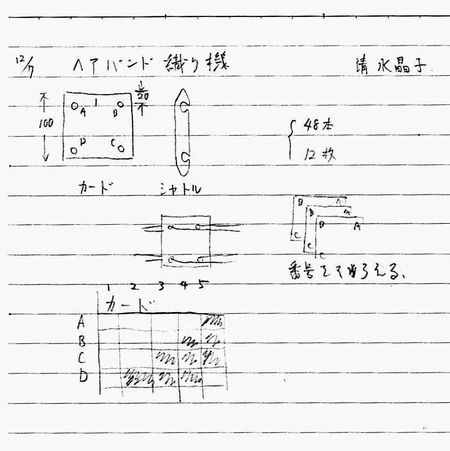 12/7 ヘアバンド織り機 清水晶子
100
20
1
A B
D C
48本
12枚
カード シャトル
B A
B A
B A
C
C
C
番号をそろえる。
1 2 3 4 5
カード
A
B
C
D